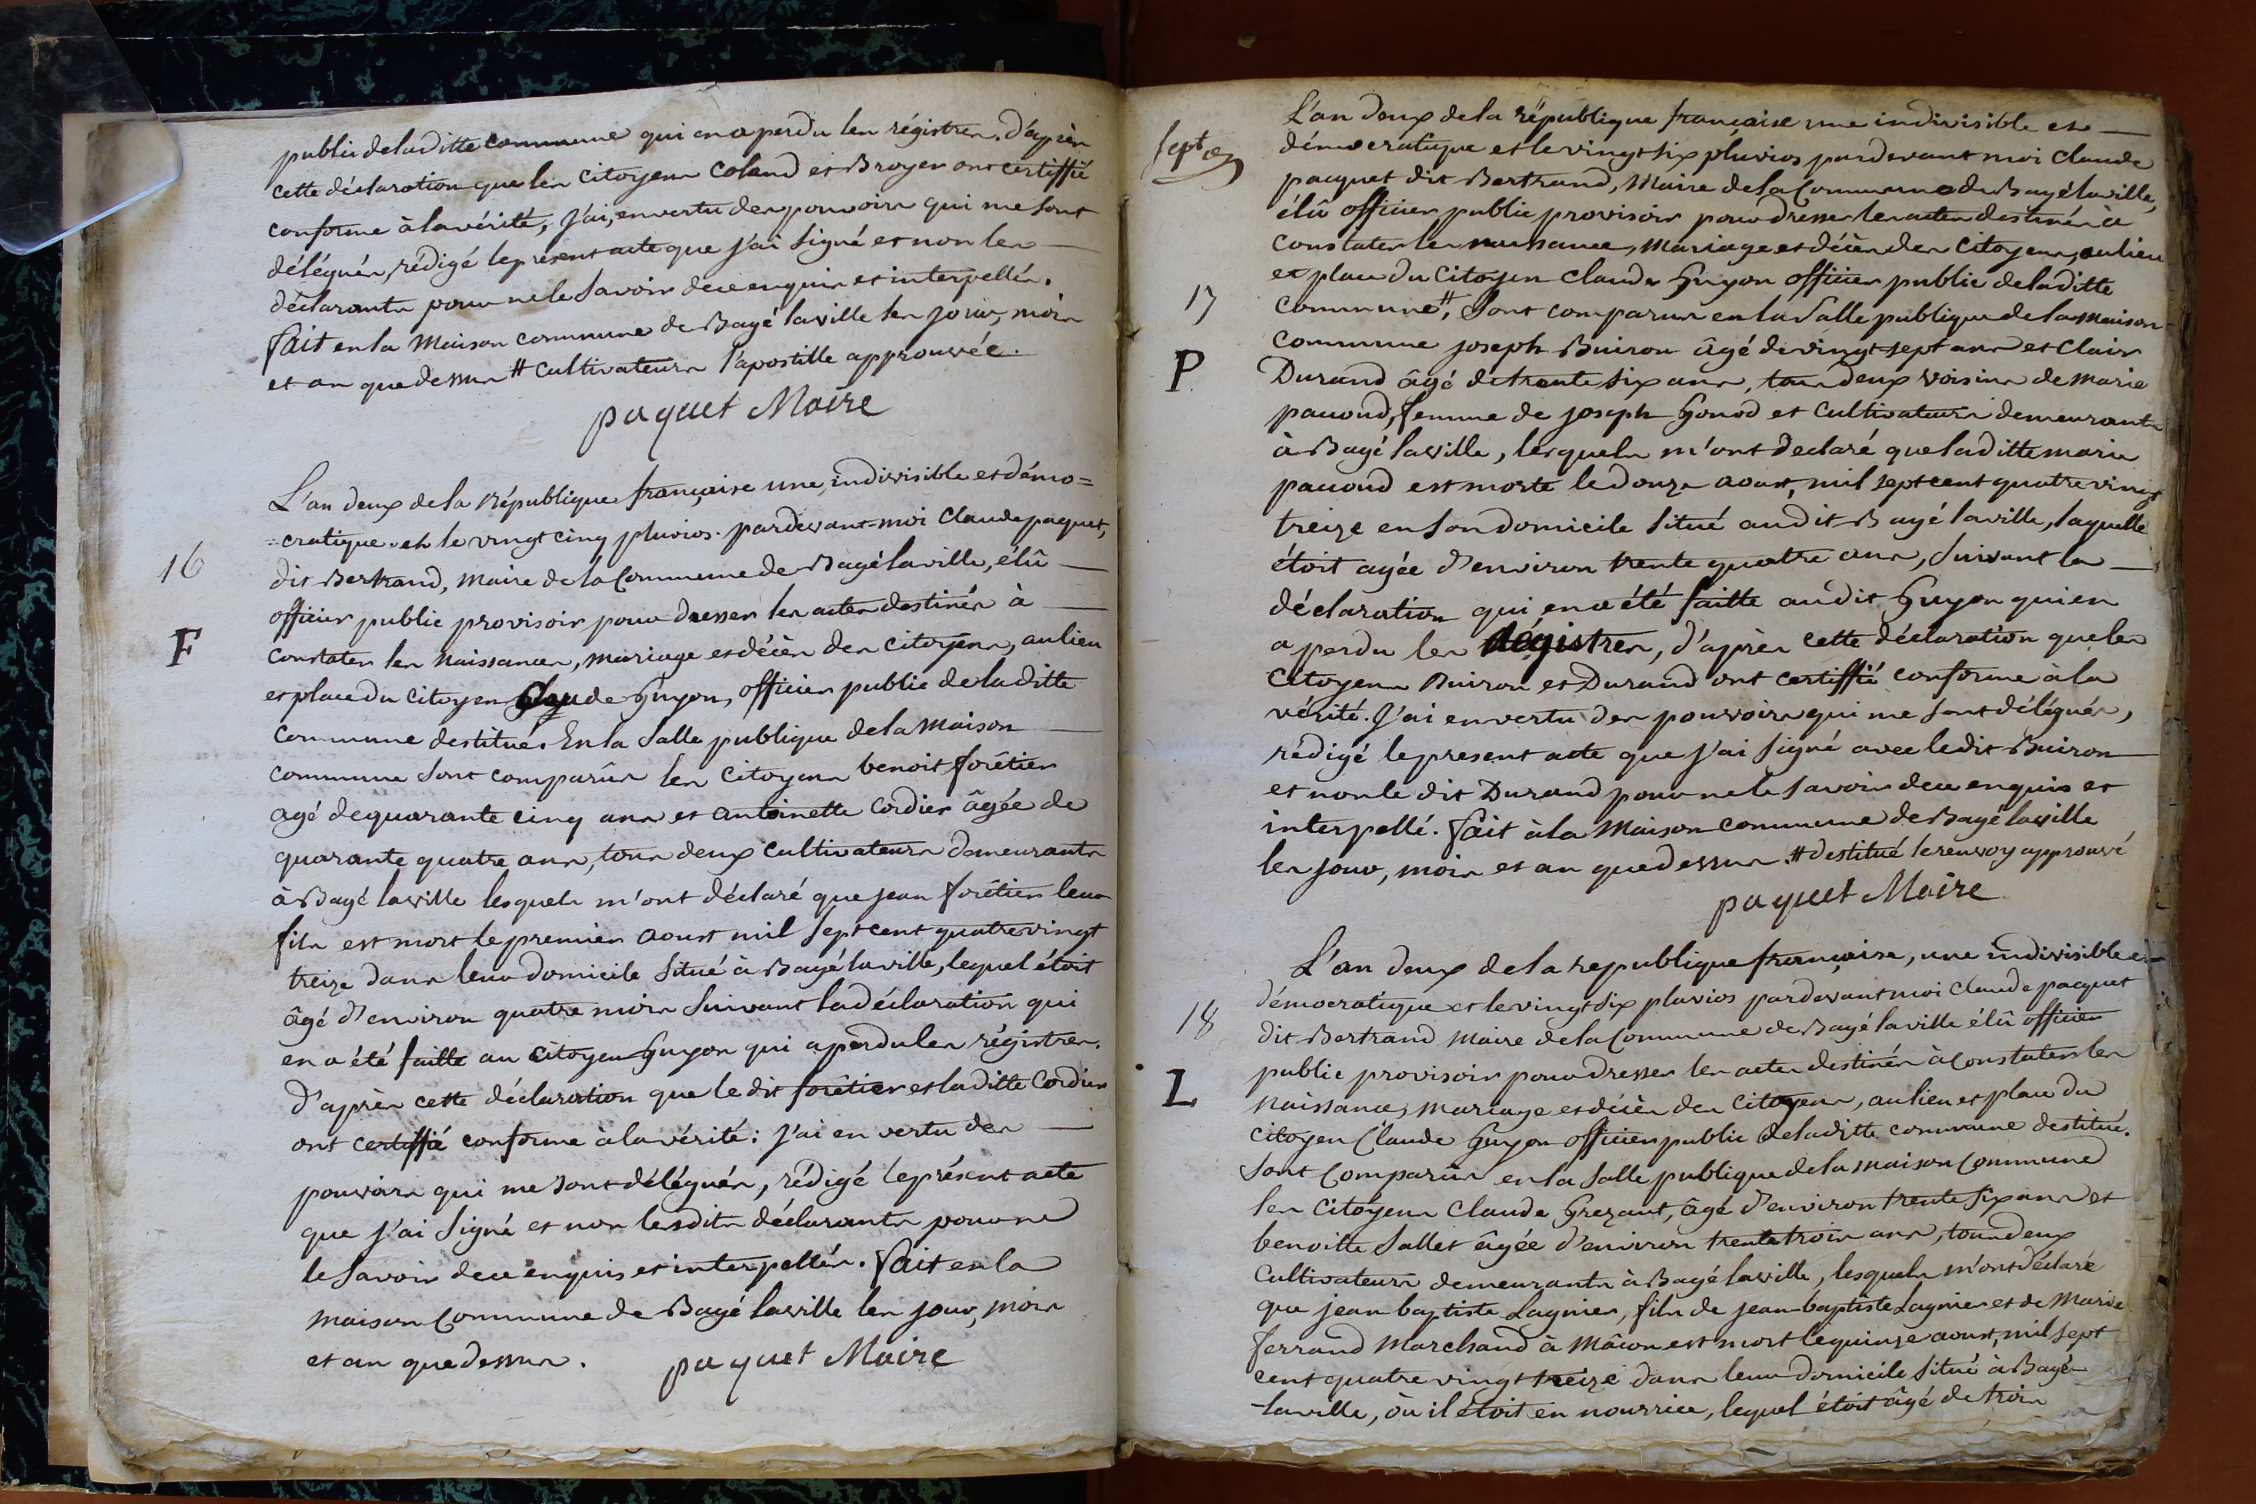 public deladitte commune qui en a perdu les régistres. d'après
cette déclaration que les citoyens Coland et Broyer ont certiffié
conforme à la vérité, J'ai, en vertu des pouvoirs qui me sont
délégués, rédigé le présent acte que j'ai signé et non les
déclarants pour ne le savoir de ce enquis et interpellés.
fait en la Maison commune de Bagé laville les jour, mois
et an que dessus # cultivateurs l'apostille approuvée.
paquet Maire
L'an deux de la République française une, indivisible et démo=
=cratique et le vingt cinq pluvios. pardevant moi Claude paquet,
16
dit Bertrand, Maire de la Commune de Bagé laville, élû
officier public provisoir pour dresser les actes destinés à
F
constater les naissances, mariage et décès des citoyens, au lieu
et place du citoyen Claude Guyon, officier public de laditte
commune destitué. En la salle publique de la Maison
commune sont comparûs les citoyens benoit forêtier
agé de quarante cinq ans et antoinette Cordier âgée de
quarante quatre ans, tous deux cultivateurs demeurants
à Bagé laville lesquels m'ont déclaré que jean forêtier leur
fils est mort le premier aoust mil sept cent quatrevingt
treize dans leur domicile situé à Bagé laville, lequel étoit
âgé d'environ quatre mois suivant la déclaration qui
en a été faitte au citoyen Guyon qui a perdu les régistres.
D'après cette déclaration que le dit forêtier et laditte Cordier
ont certiffié conforme à la vérité: J'ai en vertu des
pouvoirs qui me sont délégués, rédigé le présent acte
que j'ai signé et non lesdits déclarants pour ne
le savoir de ce enquis et interpellés. fait en la
maison Commune de Bagé laville les jour, mois
et an que dessus. paquet Maire
L'an deux de la république française une indivisible et
démocratique et le vingt six pluvios pardevant moi Claude
paquet dit Bertrand, Maire de la Commune de Bagé laville,
élû officier public provisoir pour dresser les actes destinés à
constater les naissance, mariage et décès des citoyens, au lieu
et place du citoyen Claude Guyon officier public de laditte
17
commune #, sont comparus en la salle publique de la Maison
commune joseph Buiron âgé de vingt sept ans et Clair
P
Durand âgé de trente six ans, tous deux voisins de marie
pauond, femme de joseph Gonod et cultivateurs demeurants
à Bagé laville, lesquels m'ont declaré que laditte marie
pauond est morte le douze aoust, mil sept cent quatre vingt
treize en son domicile situé audit Bagé laville, laquelle
étoit agée d'environ trente quatre ans, suivant la
déclaration qui en a été faitte audit Guyon qui en
a perdu les régistres, d'après cette déclaration que les
citoyens Buiron et Durand ont certiffié conforme à la
vérité. J'ai en vertu des pouvoirs qui me sont délégués,
rédigé le present acte que j'ai signé avec le dit Buiron
et non le dit Durand pour ne le savoir de ce enquis et
interpellé. fait à la Maison commune de Bagé laville
les jour, mois et an que dessus. # destitué le renvoy approuvé
paquet Maire
L'an deux de la republique française, une indivisible et
démocratique et le vingt six pluvios pardevant moi Claude paquet
18
dit Bertrand Maire de la Commune de Bagé laville élû officier
public provisoir pour dresser les actes destinés à constater les
L
naissance, mariage et décès des citoyens, au lieu et place du
citoyen Claude Guyon officier public deladitte commune destitué.
sont Comparûs en la salle publique de la maison Commune
les citoyens Claude Grezaut, âgé d'environ trente six ans et
benoitte Sallet âgée d'environ trente trois ans, tous deux
cultivateurs demeurants à Bagé laville, lesquels m'ont déclaré
que jean baptiste Lagnier, fils de jean-baptiste Lagnier et de Marie
ferrand Marchand à Mâcon est mort le quinze aoust, mil sept
cent quatre vingt treize dans leur domicile situé à Bagé-
laville, où il étoit en nourrice, lequel étoit âgé de trois